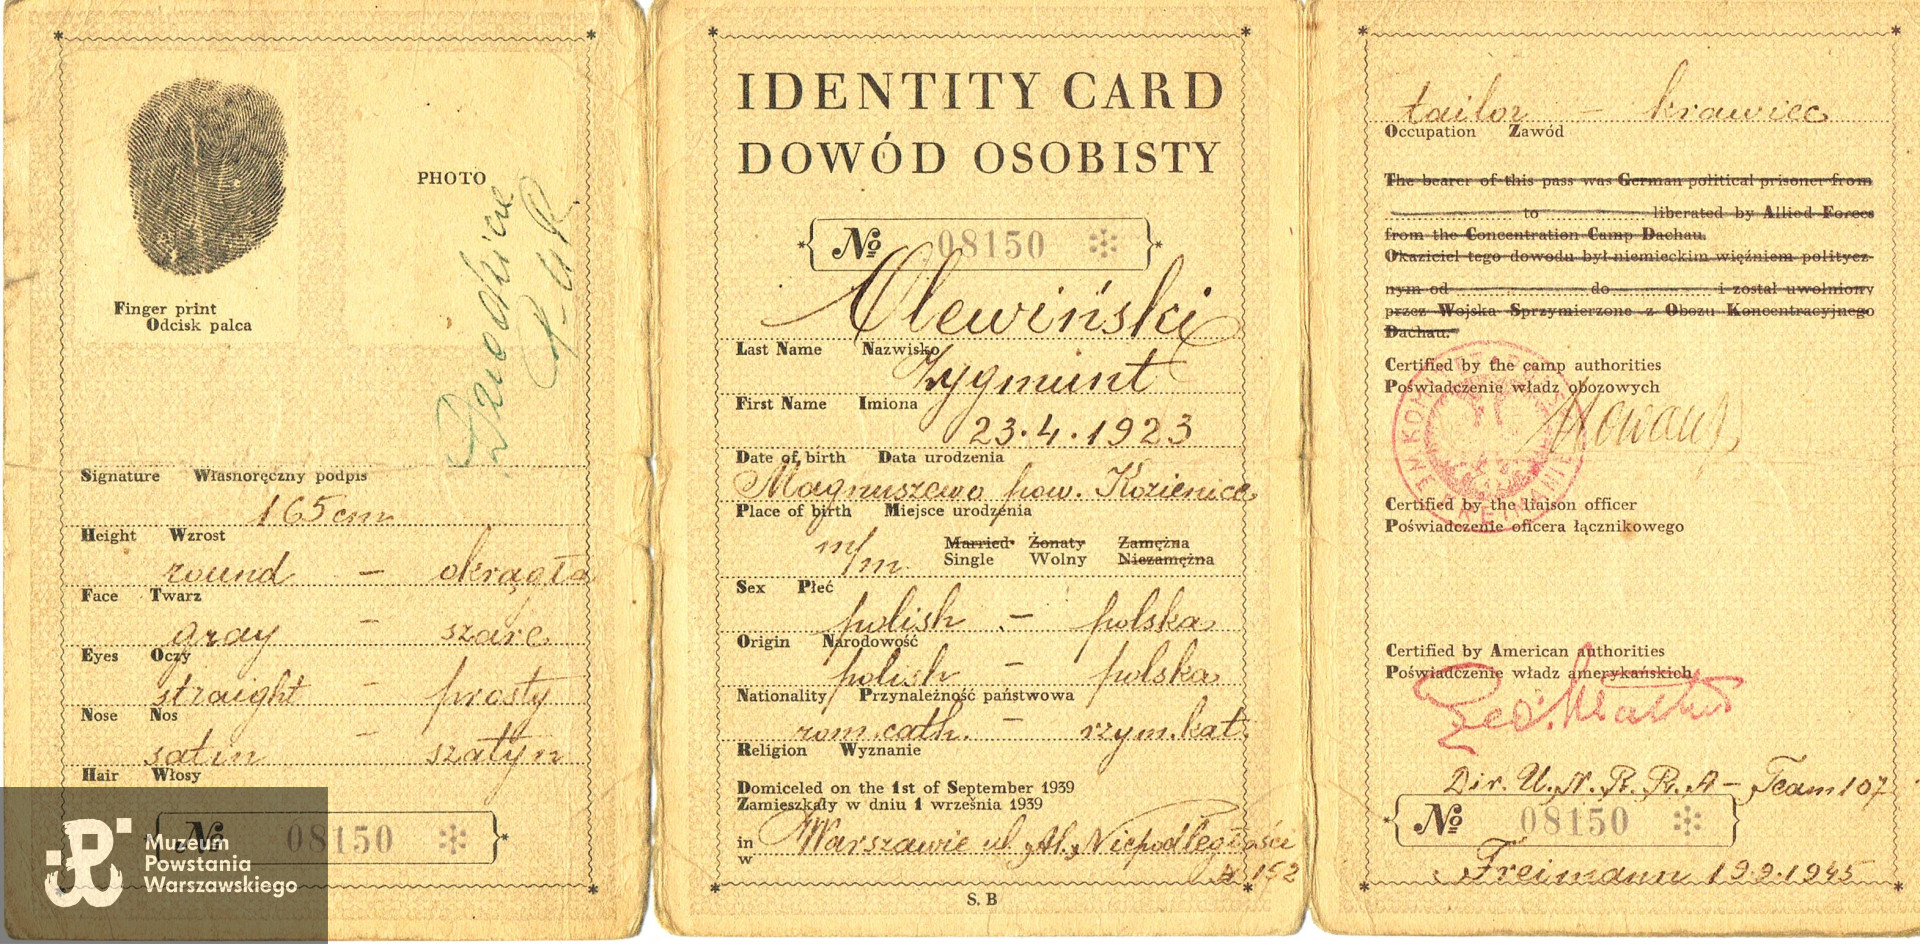 Finger print
Odcisk palca
PHOTO
Signature Własnoręczny podpis
165 cm
Height Wzrost
round – okrągła
Face Twarz
gray – szare
Eyes Oczy
straight – prosty
Nose Nos
satin – szatyn
Hair Włosy
№ 08150
Muzeum
Powstania
Warszawskiego
IDENTITY CARD
DOWÓD OSOBISTY
№ 08150
Olewiński
Last Name Nazwisko
Zygmunt
First Name Imiona
23.4.1923
Date of birth Data urodzenia
Magnuszewo pow. Kozienice
Place of birth Miejsce urodzenia
m/m.
Married Żonaty Zamężna
Single Wolny Niezamężna
Sex Płeć
polish – polska
Origin Narodowość
polish – polska
Nationality Przynależność państwowa
rom. cath. – rzym. kat.
Religion Wyznanie
Domiciled on the 1st of September 1939
Zamieszkały w dniu 1 września 1939
in
w
Warszawie ul. „Al. Niepodległości
152
S. B
tailor – krawiec
Occupation Zawód
The bearer of this pass was German political prisoner from
to liberated by Allied Forces
from the Concentration Camp Dachau.
Okaziciel tego dowodu był niemieckim więźniem politycz-
nym od do i został uwolniony
przez Wojska Sprzymierzone z Obozu Koncentracyjnego
Dachau.
Certified by the camp authorities
Poświadczenie władz obozowych
Certified by the liaison officer
Poświadczenie oficera łącznikowego
Certified by American authorities
Poświadczenie władz amerykańskich
Dir. U.N.R.R.A – Team 107
№ 08150
Freimann 19.9.1945